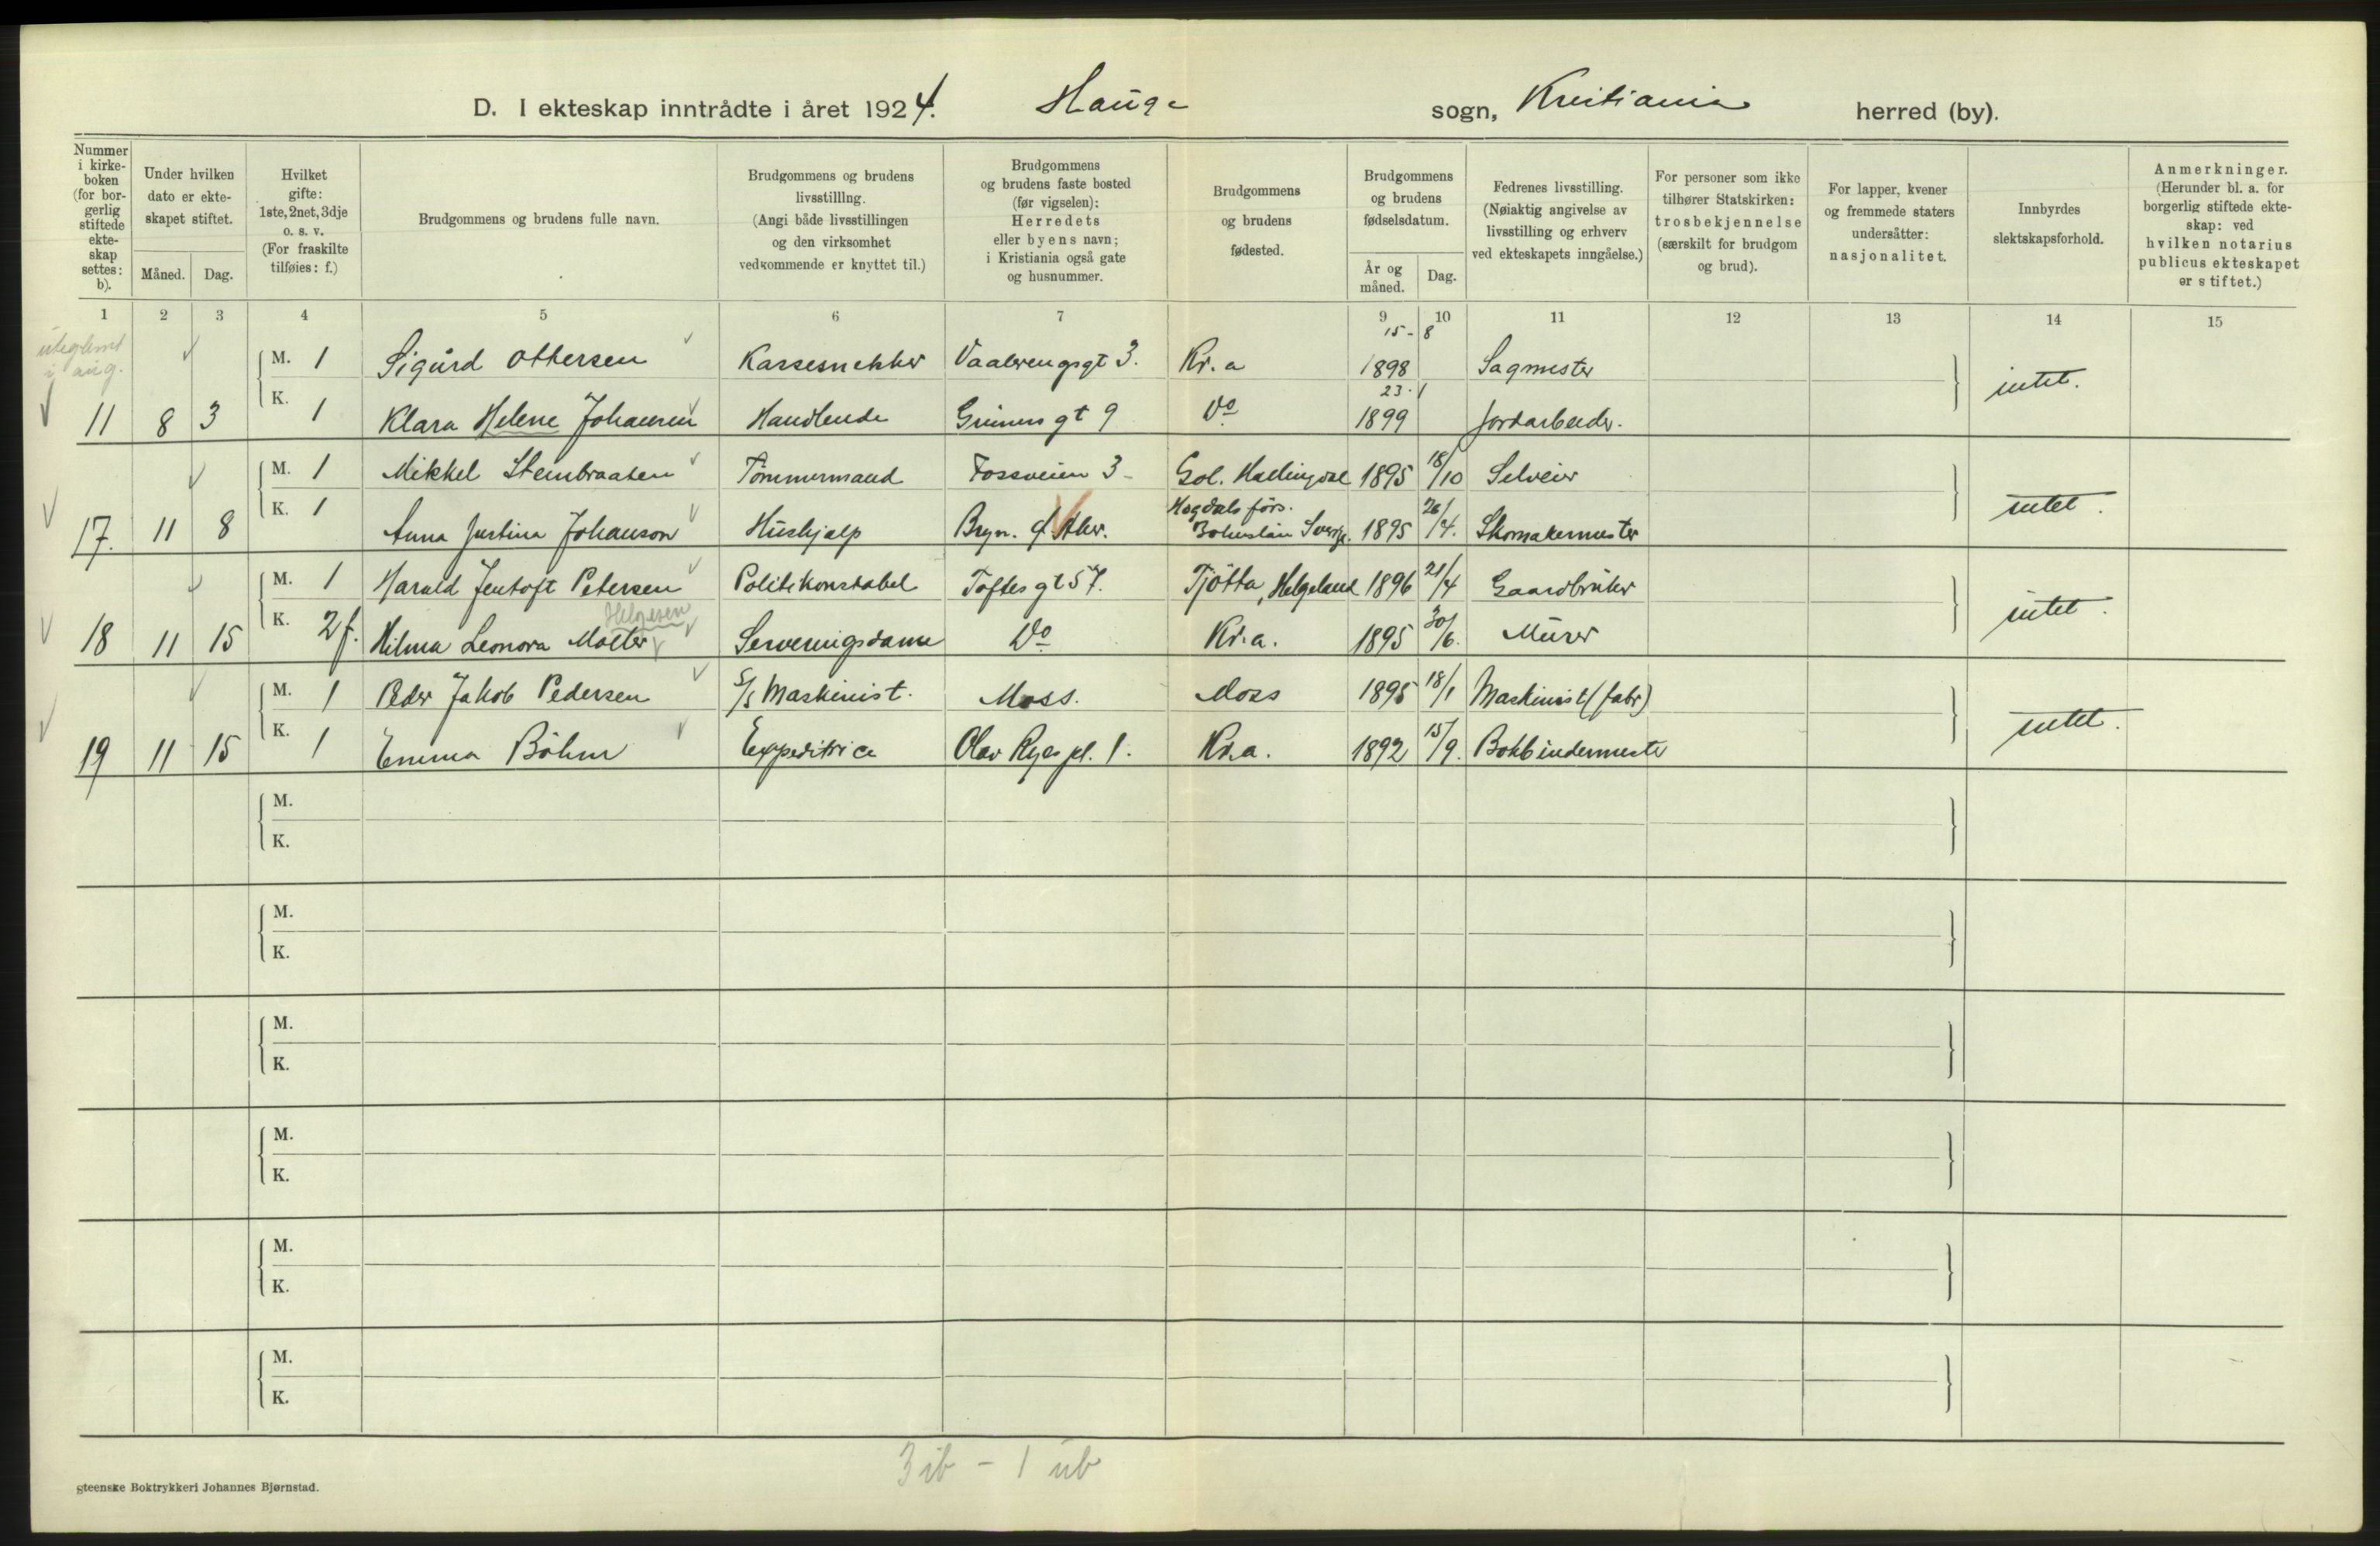 D. I ekteskap inntrådte i året 1924. Hauge sogn, Kristiania herred (by).
Nummer i kirke-boken (for bor-gerlig stiftede ekte-skap settes: b).
Under hvilken dato er ekte-skapet stiftet.
Måned. Dag.
Hvilket gifte: 1ste, 2net, 3dje o. s. v. (For fraskilte tilføies: f.)
Brudgommens og brudens fulle navn.
Brudgommens og brudens livsstilllng. (Angi både livsstillingen og den virksomhet vedkommende er knyttet til.)
Brudgommens og brudens faste bosted (før vigselen): Herredets eller byens navn; i Kristiania også gate og husnummer.
Brudgommens og brudens fødested.
Brudgommens og brudens fødselsdatum.
År og måned. Dag.
Fedrenes livsstilling. (Nøiaktig angivelse av livsstilling og erhverv ved ekteskapets inngåelse.)
For personer som ikke tilhører Statskirken: trosbekjennelse (særskilt for brudgom og brud).
For lapper, kvener og fremmede staters undersåtter: nasjonalitet.
Innbyrdes slektskapsforhold.
Anmerkninger. (Herunder bl. a. for borgerlig stiftede ekte-skap: ved hvilken notarius publicus ekteskapet er stiftet.)
1 2 3 4 5 6 7 9 10 11 12 13 14 15
uteglemt i aug.
M. 1 Sigurd Ottersen Kassesnekker Vaalerengsgt 3. Kr.a 15-8 1898 Sagmester
11 8 3 K. 1 Klara Helene Johansen Handlende Grünersgt 9 Do 23.1 1899 Jordarbeider. intet.
M. 1 Mikkel Stenbraaten Tømmermand Fossveien 3 Gol. Hallingdal 1895 18/10 Selveier
17. 11 8 K. 1 Anna Justina Johanson Hushjælp Bryn. Ø. Aker. Hogdals förs. Bohuslän Sverige. 1895 26/4. Skomakermester intet.
M. 1 Harald Jentoft Petersen Politikonstabel Toftesgt 57. Tjøtta, Helgeland 1896 21/4 Gaardbruker
Helgesen
18 11 15 K. 2 f. Hilma Leonora Møller Serveringsdame Do Kr.a. 1895 30/6. Murer intet.
M. 1 Peder Jakob Pedersen S/S Maskinist. Moss. Moss 1895 18/1 Maskinist (fabr)
19 11 15 K. 1 Emma Böhm Expeditrice Olav Ryes pl. 1. Kr.a. 1892 15/9. Bokbindermester intet.
M.
K.
M.
K.
M.
K.
M.
K.
M.
K.
M.
K.
3 ib - 1 ub
gteenske Boktrykkeri Johannes Bjørnstad.